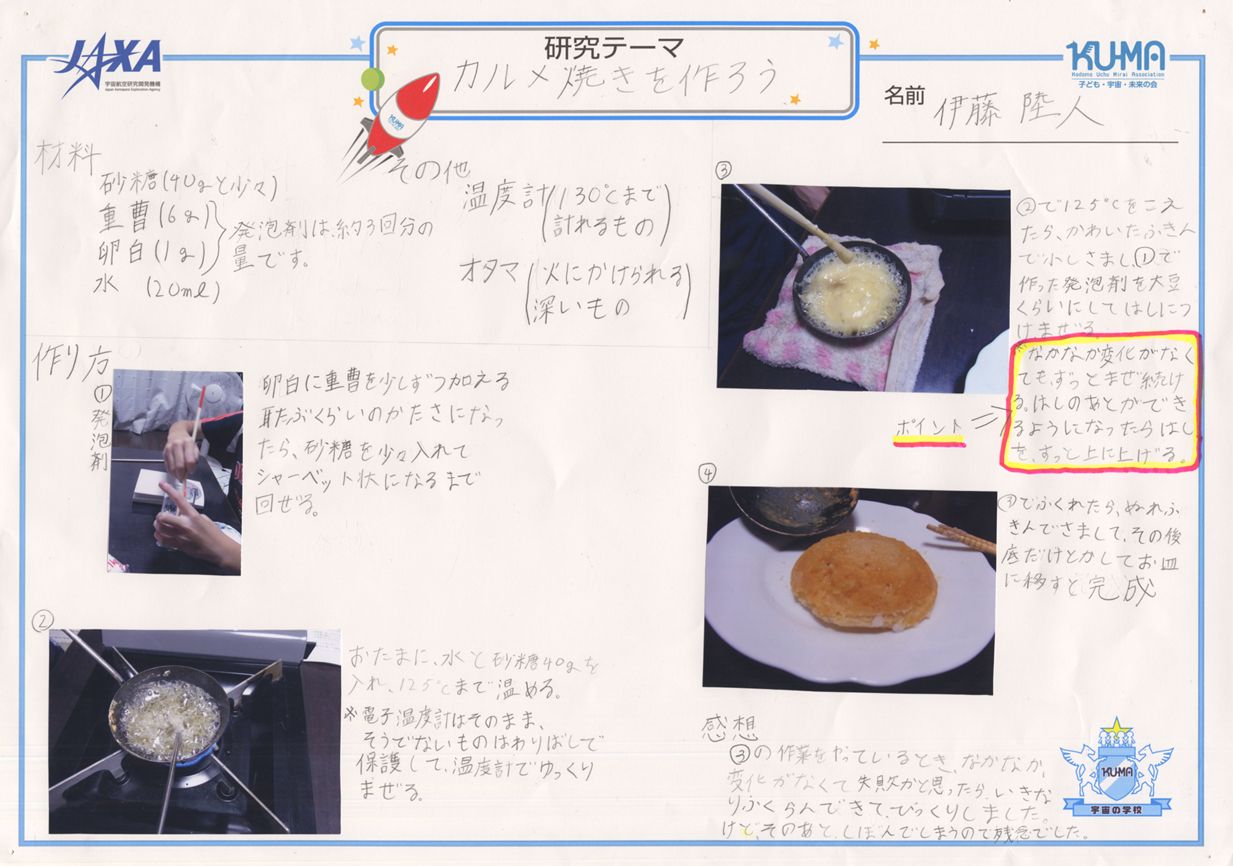 JAXA
宇宙航空研究開発機構
Japan Aerospace Exploration Agency
研究テーマ
カルメ焼きを作ろう
KUMA
KUMA
Kodomo Uchu Mirai Association
子ども・宇宙・未来の会
名前 伊藤 陸人
材料
砂糖(40gと少々)
重曹(6g)
卵白(1g)
発泡剤は、約3回分の
量です。
水 (20ml)
その他
温度計(130℃まで
計れるもの)
オタマ(火にかけられる
深いもの)
作り方
①発泡剤
卵白に重曹を少しずつ加える
耳たぶくらいのかたさになっ
たら、砂糖を少々入れて
シャーベット状になるまで
回ぜる。
②
おたまに、水と砂糖40gを
入れ、125℃まで温める。
※電子温度計はそのまま、
そうでないものはわりばしで
保護して、温度計でゆっくり
まぜる。
③
②で125℃をこえ
たら、かわいたふきん
で少しさまし、①で
作った発泡剤を大豆
くらいにしてはしにつ
けまぜる。
※なかなか変化がなく
ても、ずっとまぜ続け
る。はしのあとができ
るようになったらはし
を、ずっと上に上げる。
ポイント
④
③でふくれたら、ぬれふ
きんでさまして、その後
底だけとかしてお皿
に移すと完成
感想
③の作業をやっているとき、なかなか、
変化がなくて失敗かと思ったら、いきな
りふくらんできて、びっくりしました。
けど、そのあと、しぼんでしまうので残念でした。
KUMA
宇宙の学校